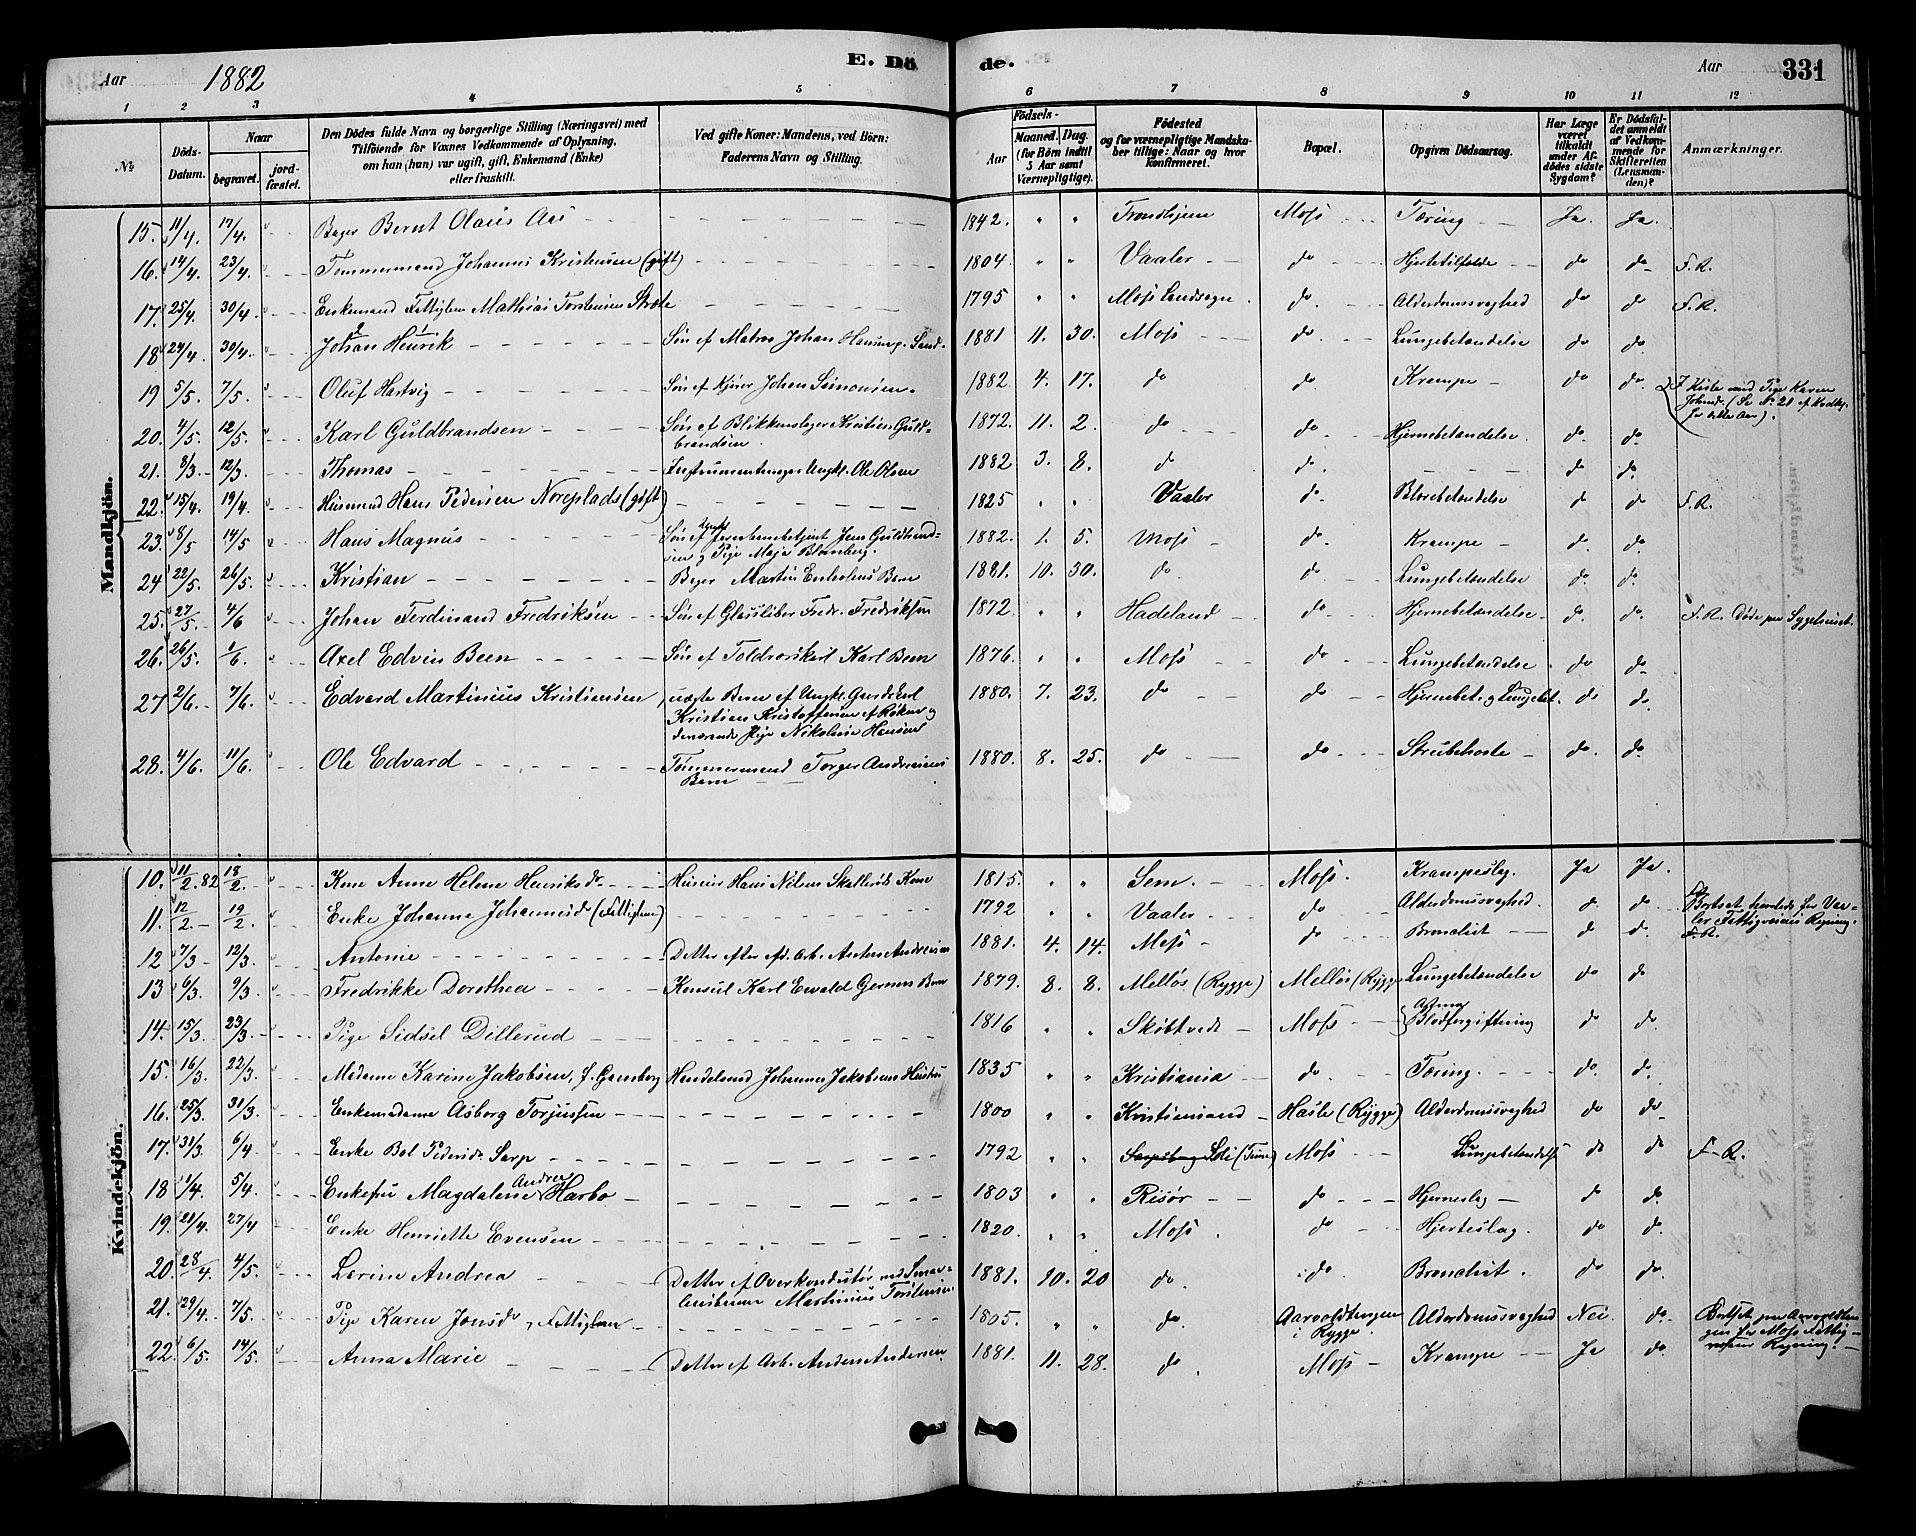 Aar 1882 E. Döde. Aar 331
1 2 3 4 5 6 7 8 9 10 11 12
No
Döds-Datum.
Naar
begravet.
jordfæstet.
Den Dödes fulde Navn og borgerlige Stilling (Næringsvei) med
Tilföiende for Voxnes Vedkommende af Oplysning,
om han (hun) var ugift, gift, Enkemand (Enke)
eller fraskilt.
Ved gifte Koner: Mandens, ved Börn:
Faderens Navn og Stilling.
Födsels-
Aar
Maaned. Dag.
(for Börn indtil
5 Aar samt
Værnepligtige).
Födested
og for værnepligtige Mandskaber tillige: Naar og hvor
konfirmeret.
Bopæl.
Opgiven Dödsaarsag.
Har Læge været tilkaldt under Afdödes sidste Sygdom?
Er Dödsfaldet anmeldt af Vedkommende for Skifteretten (Lensmanden)?
Anmærkninger.
Mandkjön.
15. 11/4. 17/4. Bager Bernt Olaus Aas 1842. " " Trondhjem Moss Tæring Ja. Ja.
16. 14/4. 23/4. Tømmermand Johannes Kristensen (gift) 1804. " " Vaaler do Hjertetilfælde do do F.R.
17. 25/4. 30/4. Enkemand Fattiglem Mathias Torstensen 1795 " " Moss Landsogn do. Alderdomssvaghed do do F.R.
18 24/4. 30/4. Johan Henrik Søn af Matros Johan 1881 11. 30. Moss do. Lungebetændelse do do.
19 5/5. 7/5. Oluf Hartvig Søn af Kjører Johan Simonsen 1882. 4. 17. do do. Krampe do do. I Kiste med Pige Karen
Johnsd. (Se No 21 af Kvdkj.
for dette Aar).
20. 4/5. 12/5. Karl Guldbrandsen Søn af Blikkenslager Kristian Guldbrandsen. 1872. 11. 2. do do. Hjernebetændelse. do. do.
21. 8/3. 12/3. Thomas Ungk. Ole Olsen 1882 3. 8. d do. do do.
22. 15/4. 19/4. Husmand Hans Pedersen Noreplads (gift) 1825 " " Vaaler do. Blærebetændelse do do F.R.
23. 8/5 14/5 Hans Magnus Søn af Ungk. Jernbanebetjent Jens
og Pige Maja Blomberg. 1882. 1. 5. Moss do. Krampe do. do.
24 22/5. 26/5. Kristian Bager Martin Barn 1881. 10. 30. do do. Lungebetændelse do. do.
25. 27/5. 4/6 Johan Ferdinand Fredriksen Søn af Glassliber Fredr. Fredriksen 1872 " " Hadeland do Hjernebetændelse. do. do. F.R. Døde paa Sygehuset.
26. 26/5. 1/6. Axel Edvin Been Søn af Toldroerskarl Karl Been 1876. " " Moss do Lungebetændelse do do.
27 2/6. 7/6. Edvard Martinius Kristiansen, uægte Barn af Ungk. Gaardskarl
Kristian Kristoffersen af Røken og
Pige Nikoline Hansen 1880. 7. 23. do do Hjernebet. og Lungebet. do do.
28. 4/6. 11/6. Ole Edvard Tømmermand Torger Andreasens
Barn 1880. 8. 25. do do Strubehoste do. do.
Kvindekjön.
10. 11/2.82 18/2. Kone Anne Helene Henriksdr Husmand Hans Nilsen Kone 1815. " " Sem. Moss. Krampeslag. Ja Ja.
11. 12/2. 19/2. Enke Johanne Johannesdr (Fattiglem) 1792 " " Vaaler do Alderdomssvaghed d. do. Bortsat herstedes for Vaaler Fattigvæsens Regning.
F.R.
12 7/3 12/3. Antonie Datter efter afd. Arb. Anton Andreasen 1881. 4. 14. Moss do Bronchit d. do.
13 6/3. 9/3. Fredrikke Dorothea Konsul Karl Ewald Gerners Barn 1879. 8. 8. Melløs (Rygge) Melløs (Rygge) Lungebetændelse do do
14. 15/3. 23/3. Pige Sidsel Dillerud 1816 " " Skøbtvedt Moss Astma
Blodforgiftning do do.
15. 16/3. 22/3. Madame Karine Jakobsen, f. Gamborg Handelsmd Johannes Jakobsens Hustru 1835 " " Kristiania do. Tæring. do. do.
16. 25/3. 31/3. Enkemadame Asborg Torjussen 1800 " " Kristiansand Hasle (Rygge) Alderdomssvaghed do do.
17. 31/3. 6/4 Enke Bol Pedersdr. Sarp 1792 " " (Tune) Moss Lungebetændelse do do F.R.
18 1/4. 5/4. Enkefru Magdalene Andrea Harbo 1803 " " Risør do. Hjerneslag do do.
19. 20/4. 27/4 Enke Henriette Evensen 1820. " " Moss. do Hjerteslag. do do.
20. 28/4. 4/5. Lovine Andrea Datter af Overkonduktør ved Smaalensbanen Martinius Torstensen 1881. 10. 20 do. do. Bronchit. do do.
21. 29/4. 7/5. Pige Karen Jonsdr, Fattiglem 1805. " " do. Aarvoldtangen
i Rygge. Alderdomssvaghed Nei. do. Bortsat paa Aarvoldtangen for Moss Fattigvæsens Regning.
22. 6/5. 14/5. Anna Marie Datter af Arb. Anders Andersen. 1881. 11. 28. do. Moss Krampe Ja do.